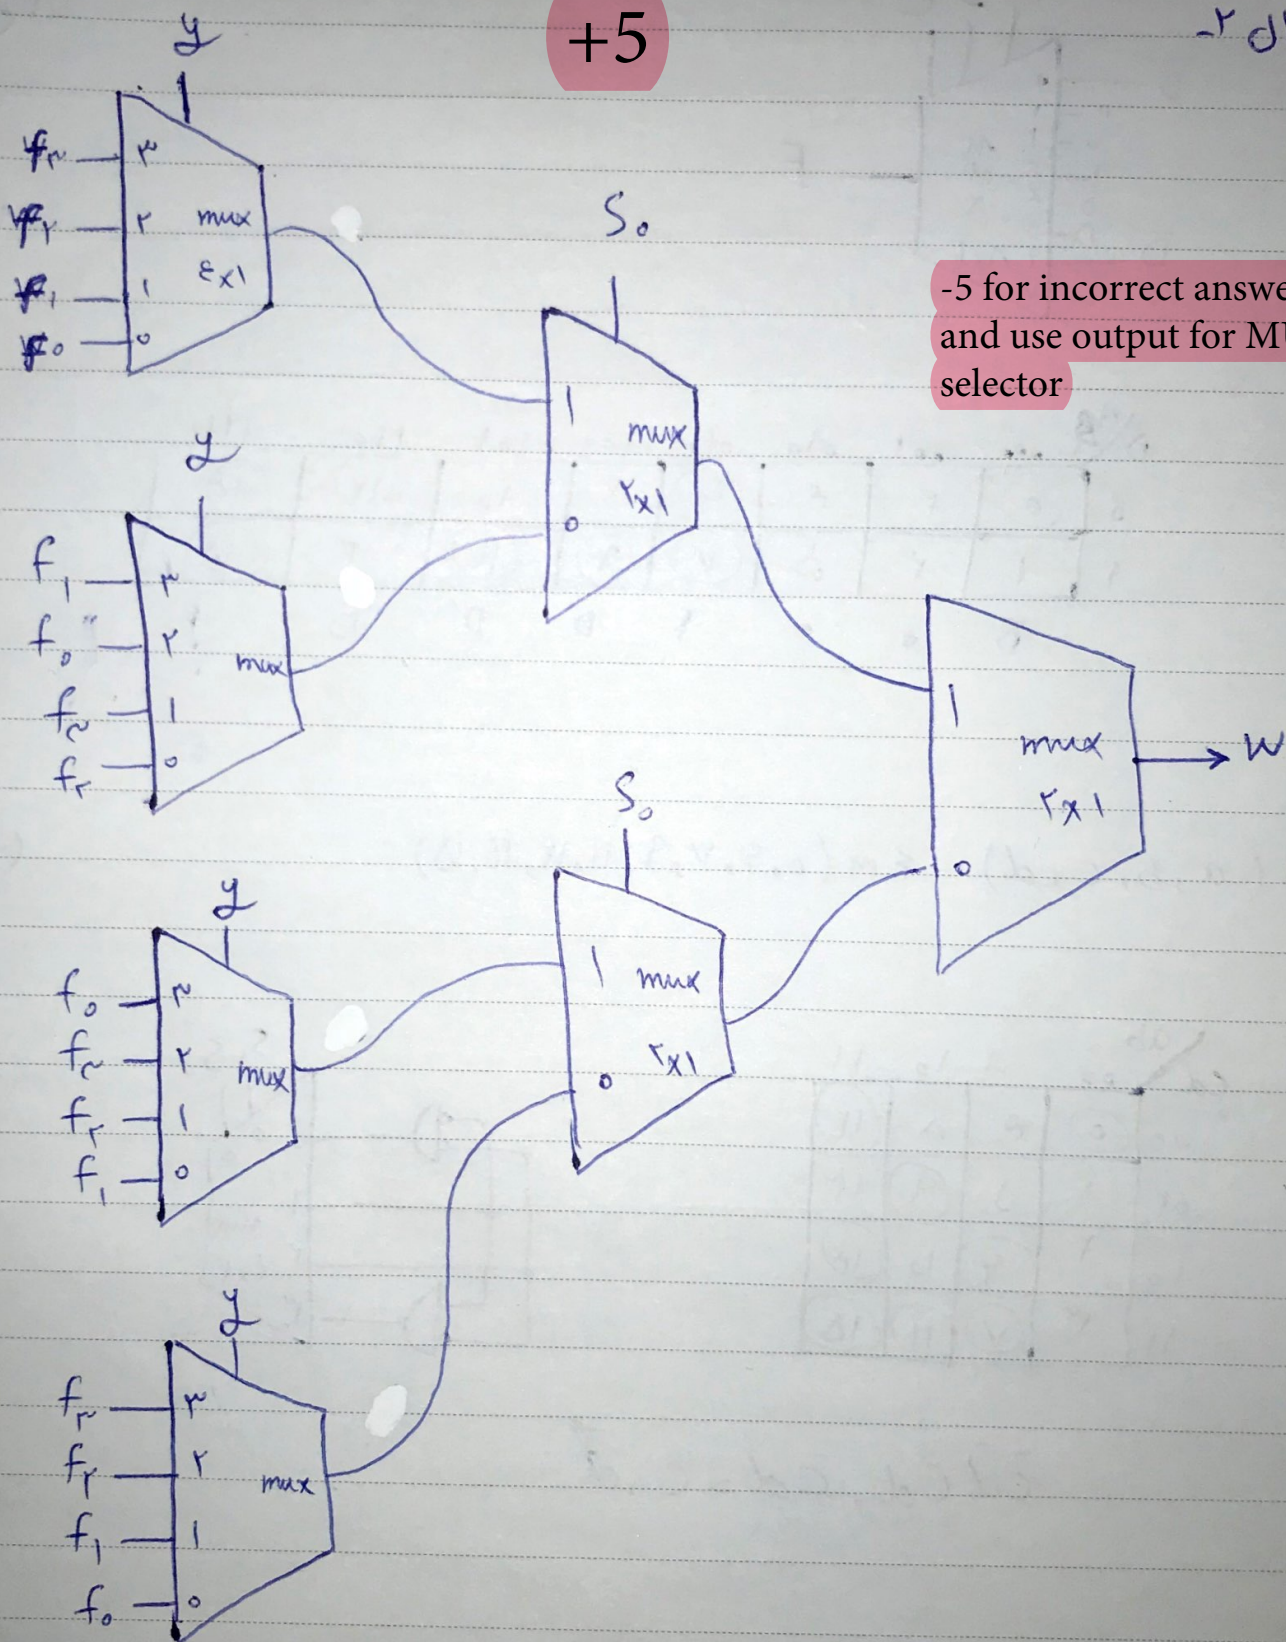 +5
-5 for incorrect answe
and use output for MU
selector
y
f۳
۳
f۲
۲
mux
۴x۱
f۱
۱
f۰
۰
S۰
۱
mux
۲x۱
۰
y
f۱
۳
f۰
۲
mux
f۳
۱
f۲
۰
۱
mux
۲x۱
۰
W
S۰
۱
mux
۲x۱
۰
y
f۰
۳
f۳
۲
mux
f۲
۱
f۱
۰
y
f۳
۳
f۲
۲
mux
f۱
۱
f۰
۰